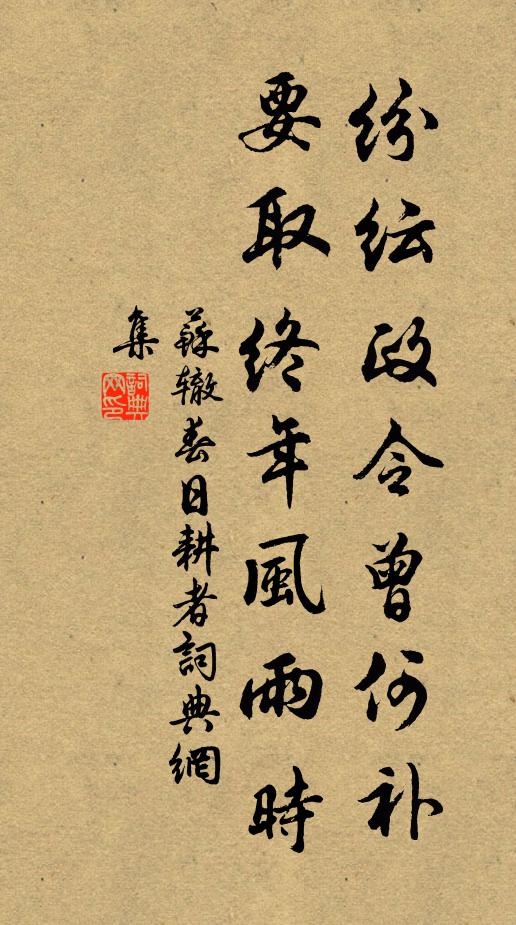 紛紜政令曾何补
要取終年風雨時
蘇辙春日耕者詞典網
集
詞典
网印